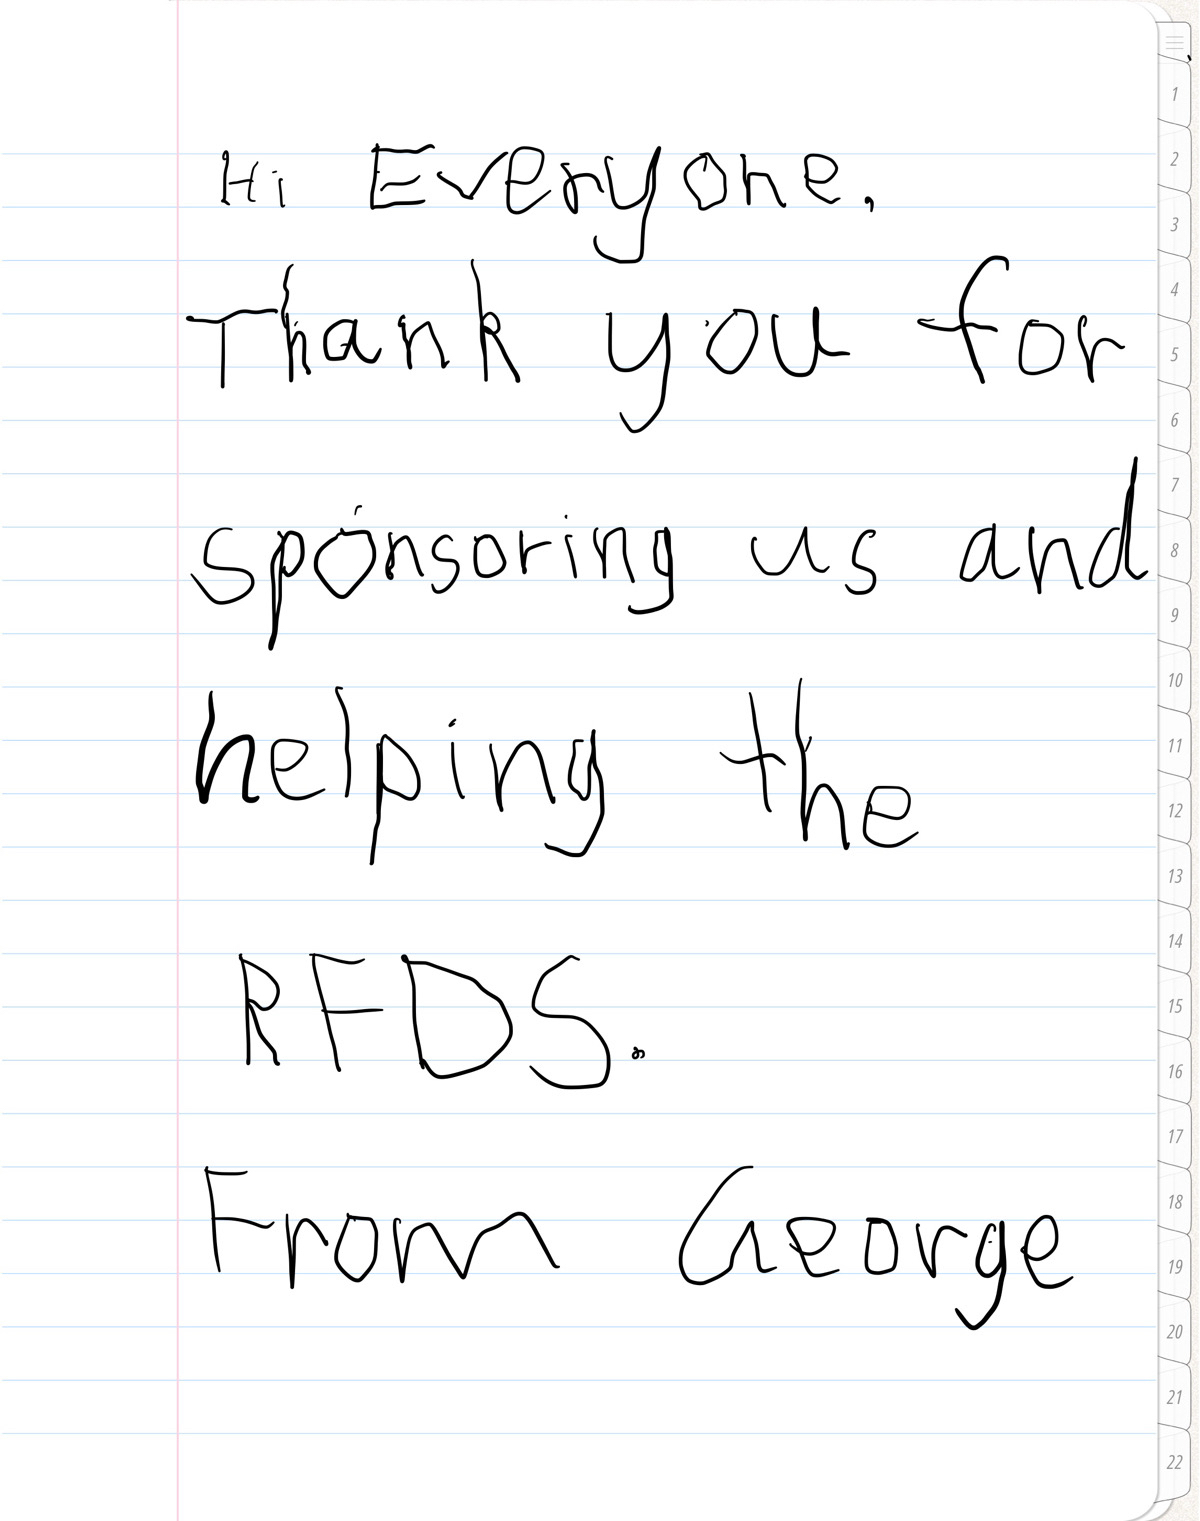 Hi Everyone,
Thank you for
sponsoring us and
helping the
RFDS.
From George
1
2
3
4
5
6
7
8
9
10
11
12
13
14
15
16
17
18
19
20
21
22